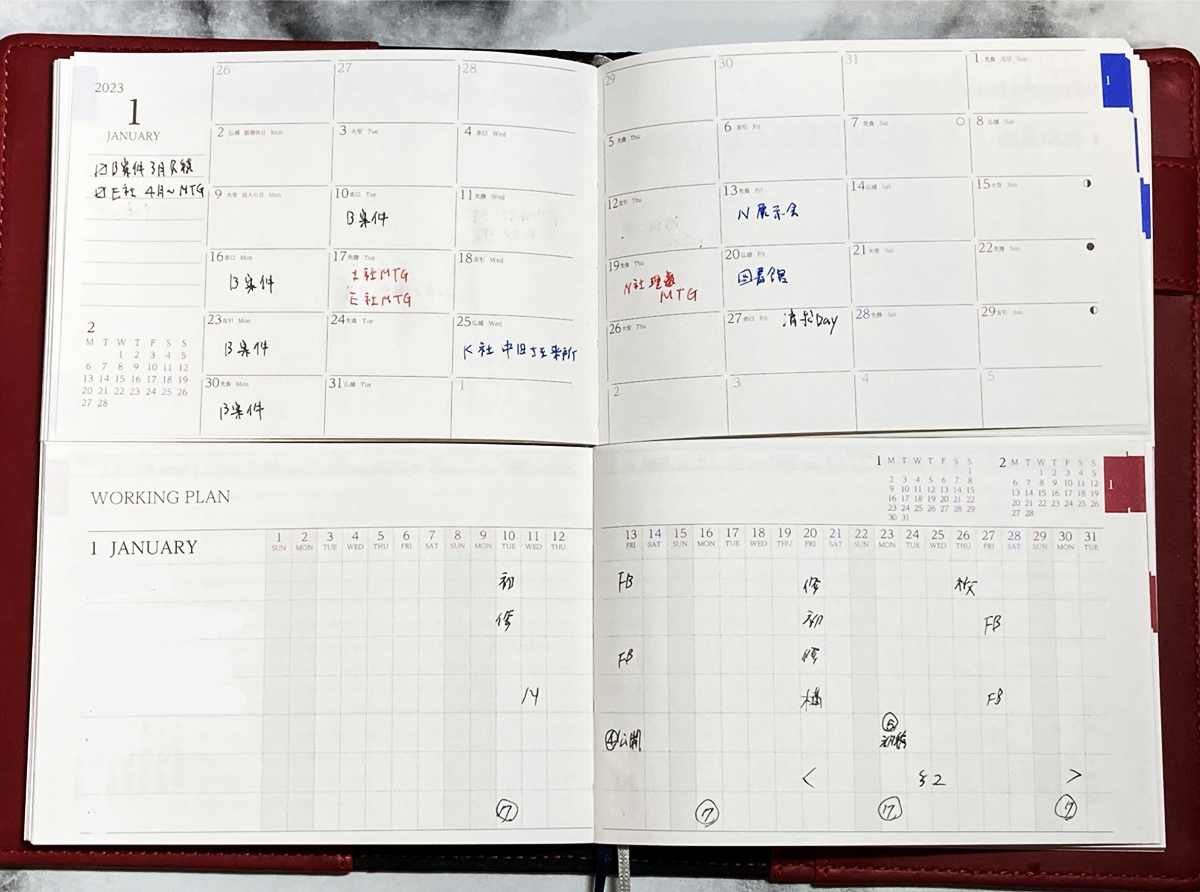 2023
1
JANUARY
26
27
28
29
30
31
1 先負 元日 Sun
2 仏滅 振替休日 Mon
3 大安 Tue
4 赤口 Wed
5 先勝 Thu
6 友引 Fri
7 先負 Sat
8 仏滅 Sun
☑B案件 3月
☑E社 4月〜MTG
9 大安 成人の日 Mon
10 赤口 Tue
11 先勝 Wed
12 友引 Thu
13 先負 Fri
14 仏滅 Sat
15 大安 Sun
B案件
N展示会
16 赤口 Mon
17 先勝 Tue
18 友引 Wed
19 先負 Thu
20 仏滅 Fri
21 大安 Sat
22 先勝 Sun
B案件
社MTG
E社MTG
N社理
MTG
図書館
23 友引 Mon
24 先負 Tue
25 仏滅 Wed
26 大安 Thu
27 赤口 Fri
28 先勝 Sat
29 友引 Sun
B案件
K社 来所
請求Day
30 先負 Mon
31 仏滅 Tue
1
2
3
4
5
B案件
2
M T W T F S S
1 2 3 4 5
6 7 8 9 10 11 12
13 14 15 16 17 18 19
20 21 22 23 24 25 26
27 28
1
WORKING PLAN
1 M T W T F S S
1
2 3 4 5 6 7 8
9 10 11 12 13 14 15
16 17 18 19 20 21 22
23 24 25 26 27 28 29
30 31
2 M T W T F S S
1 2 3 4 5
6 7 8 9 10 11 12
13 14 15 16 17 18 19
20 21 22 23 24 25 26
27 28
1
1 JANUARY
1 2 3 4 5 6 7 8 9 10 11 12 13 14 15 16 17 18 19 20 21 22 23 24 25 26 27 28 29 30 31
SUN MON TUE WED THU FRI SAT SUN MON TUE WED THU FRI SAT SUN MON TUE WED THU FRI SAT SUN MON TUE WED THU FRI SAT SUN MON TUE
初 FB 修 校
修 初 FB
FB 修
構 FB
④公開 ⑤
< 2 >
⑦ ⑦ ⑰